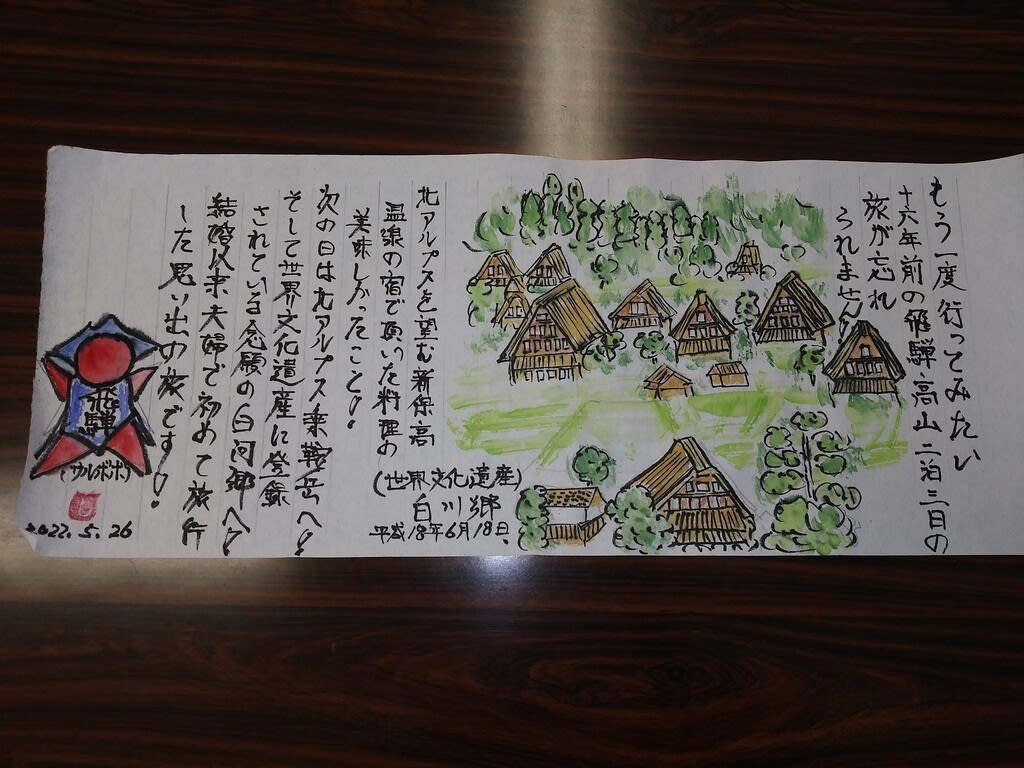 もう一度行ってみたい
十六年前の飛騨高山二泊三日の
旅が忘れ
られません!
(世界文化遺産)
白川郷
平成18年6月18日、
北アルプスを望む新保高
温泉の宿で頂いた料理の
美味しかったこと!
次の日は北アルプス乗鞍岳へ!
そして世界文化遺産に登録
されている念願の白河郷へ!
結婚以来夫婦で初めて旅行
した思い出の旅です!
飛騨
(サルボボ)
2022.5.26